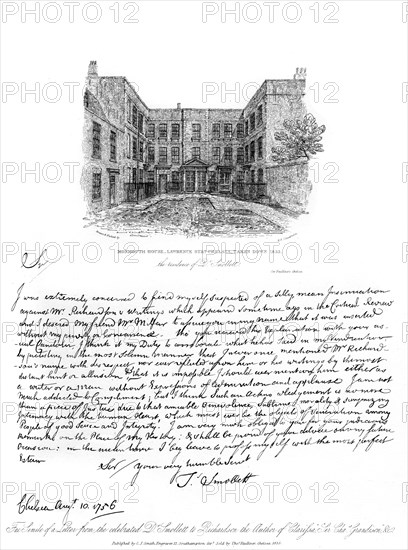 MONMOUTH HOUSE, LAWRENCE STREET CHELSEA, TAKEN DOWN 1835,
the residence of Dr. Smollett.
Sir
I was extremely concerned to find myself suspected of a silly, mean Insinuation
against Mr. Richardson's writings which appeared some time ago in the Critical Review
and I desired my friend Mr. Millar to assure you in my name that it was inserted
without my privity or Concurrence.
Candour, I think it my Duty to
in the most solemn manner that I never once mentioned Mr. Richard-
son's name with disrespect nor ever reflected upon him or his writings by the most
distant hint or allusion, that it is impossible I should ever mention him either as
a writer or a man without Expressions of Veneration and applause. I am not
much addicted to Compliment; but I think such an acknowledgement is no more
than a piece of Justice due to that amiable Benevolence, Sublime morality & surprizing
intimacy with the human Heart which must ever be the objects of Veneration among
People of good Sense and Integrity. I am very much obliged to you for your judicious
Remarks on the Plan of my History; & shall be proud of your advice on any future
Occasion: in the mean time I beg leave to profess myself with the most perfect
Esteem
Sir your very humble Servt
Ts. Smollett
Chelsea Augt. 10. 1756
Fac Simile of a Letter from the celebrated Dr. Smollett to Richardson the Author of Clarissa, Sir Chas. Grandison, &c.
Published by C. J. Smith, Engraver, Southampton Str.
PHOTO12